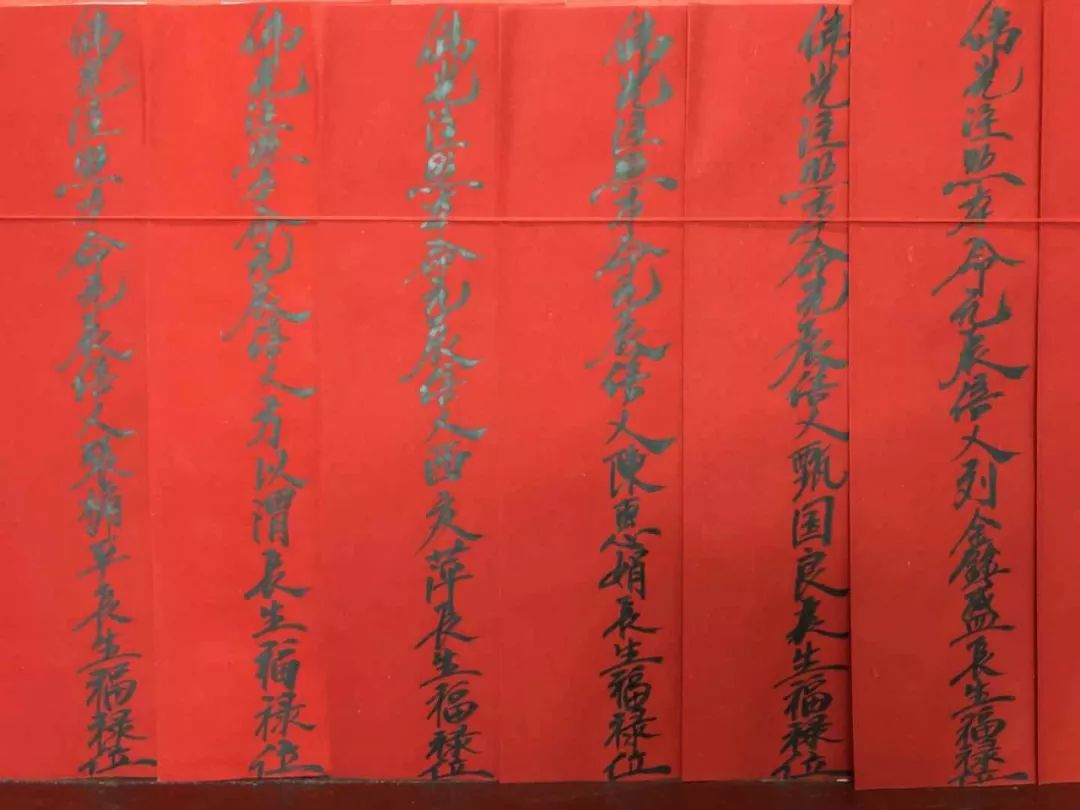 佛光注照本命元辰信人列金盛長生福禄位
佛光注照本命元辰信人甄国良長生福禄位
佛光注照本命元辰信人陳惠娟長生福禄位
佛光注照本命元辰信人西萍長生福禄位
佛光注照本命元辰信人方以渭長生福禄位
佛光注照本命元辰信人張娟平長生福禄位